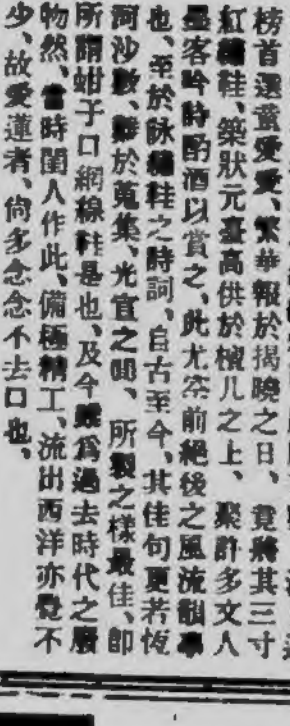 榜首選董愛愛、繁華報於揭曉之日、竟將其三寸
紅繡鞋、築狀元臺高供於檀几之上、聚許多文人
墨客吟詩酌酒以賞之、此尤空前絕後之風流韻事
也、至於詠繡鞋之詩詞、自古至今、其佳句更若恆
河沙數、難於蒐集、光宣之間、所製之樣最佳、即
所謂蚶子口網線鞋是也、及今雖爲過去時代之廢
物然、當時閨人作此、備極精工、流出西洋亦覺不
少、故愛蓮者、尙多念念不去口也、